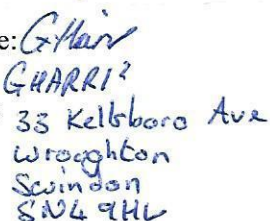 e: GHarr
GHARRIS
33 Kellsboro Ave
Wroughton
Swindon
SN4 9HL